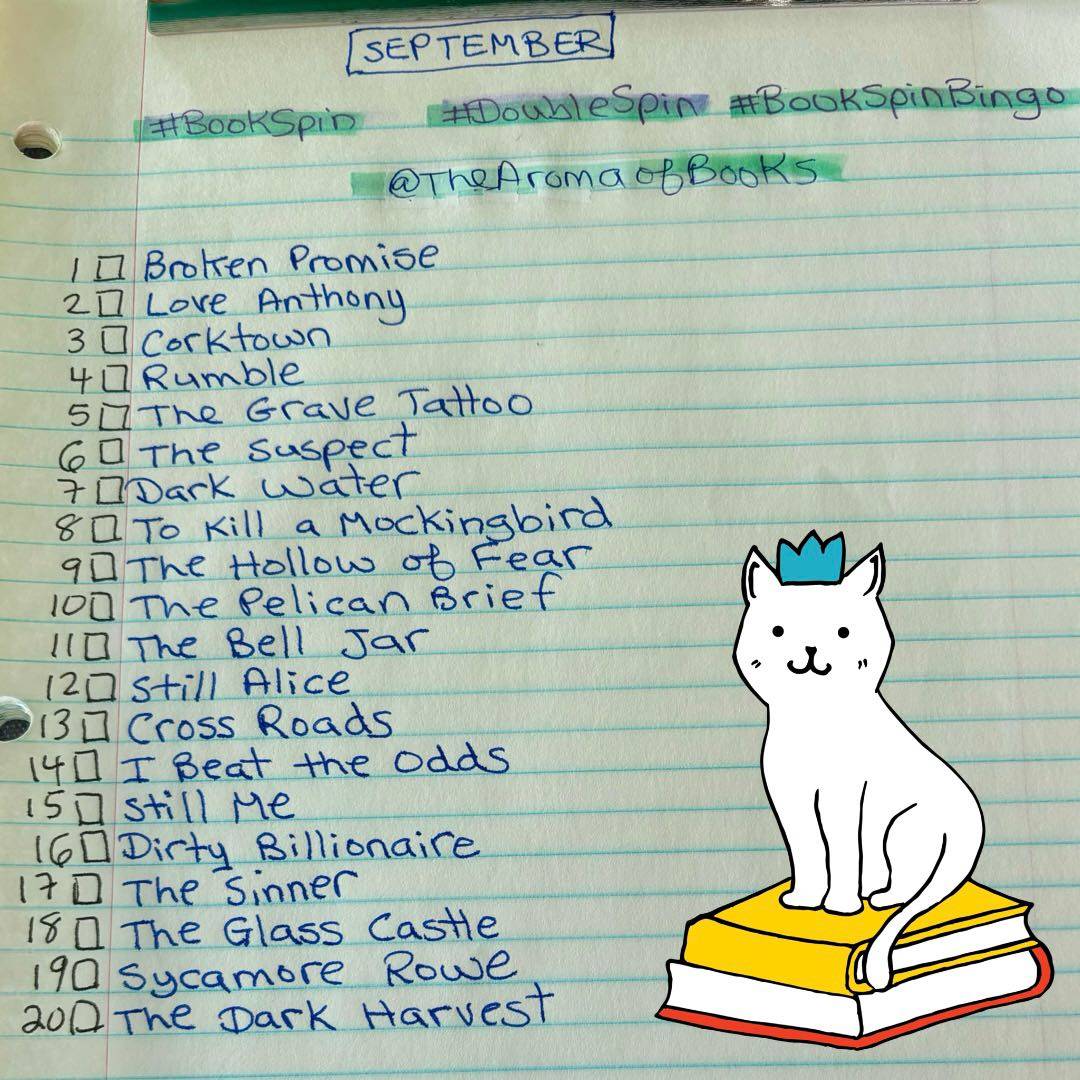 SEPTEMBER
#BookSpin #DoubleSpin #BookSpinBingo
@TheAromaofBooks
1 Broken Promise
2 Love Anthony
3 Corktown
4 Rumble
5 The Grave Tattoo
6 The Suspect
7 Dark Water
8 To Kill a Mockingbird
9 The Hollow of Fear
10 The Pelican Brief
11 The Bell Jar
12 Still Alice
13 Cross Roads
14 I Beat the Odds
15 Still Me
16 Dirty Billionaire
17 The Sinner
18 The Glass Castle
19 Sycamore Rowe
20 The Dark Harvest